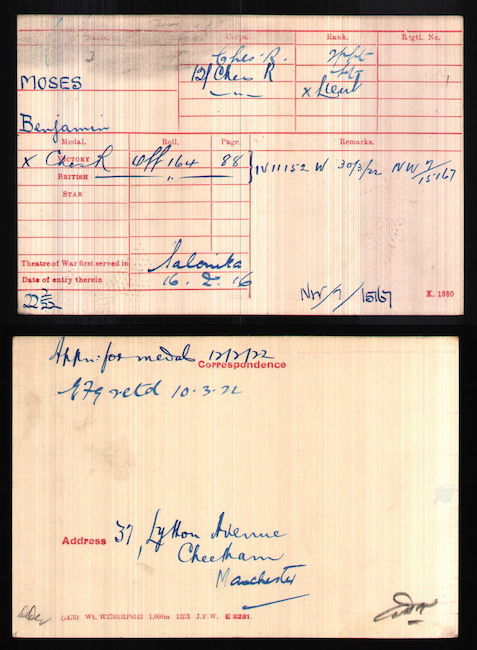 Name. Corps. Rank. Regtl. No.
Ches. R.
12/ Ches R
MOSES x Lieut
Benjamin
Medal. Roll. Page. Remarks.
x VICTORY Ches R Off 164 88 IV 11152 W 30/3/22 NW 7/15167
BRITISH "
STAR
Theatre of War first served in Salonika
Date of entry therein 16. 2. 16
NW/7/15167 K. 1380
Appn. for medal 12/2/22
Correspondence
EF9 retd 10.3.22
Address 37, Lytton Avenue
Cheetham
Manchester
1,000m J.F.W. E 8281